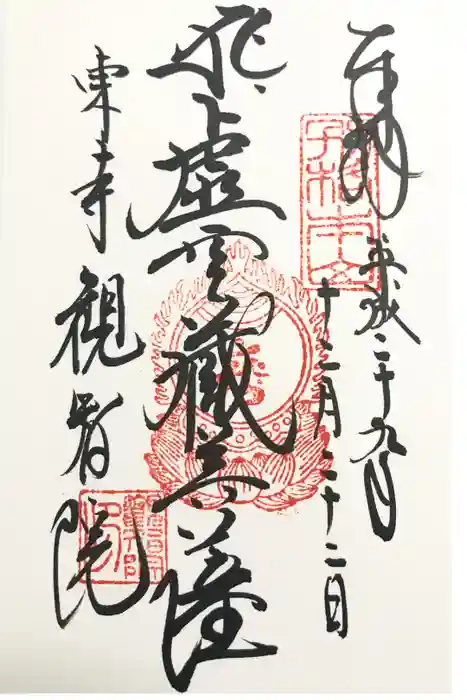 奉拝
平成二十九年
十二月二十二日
虚空蔵菩薩
東寺観智院